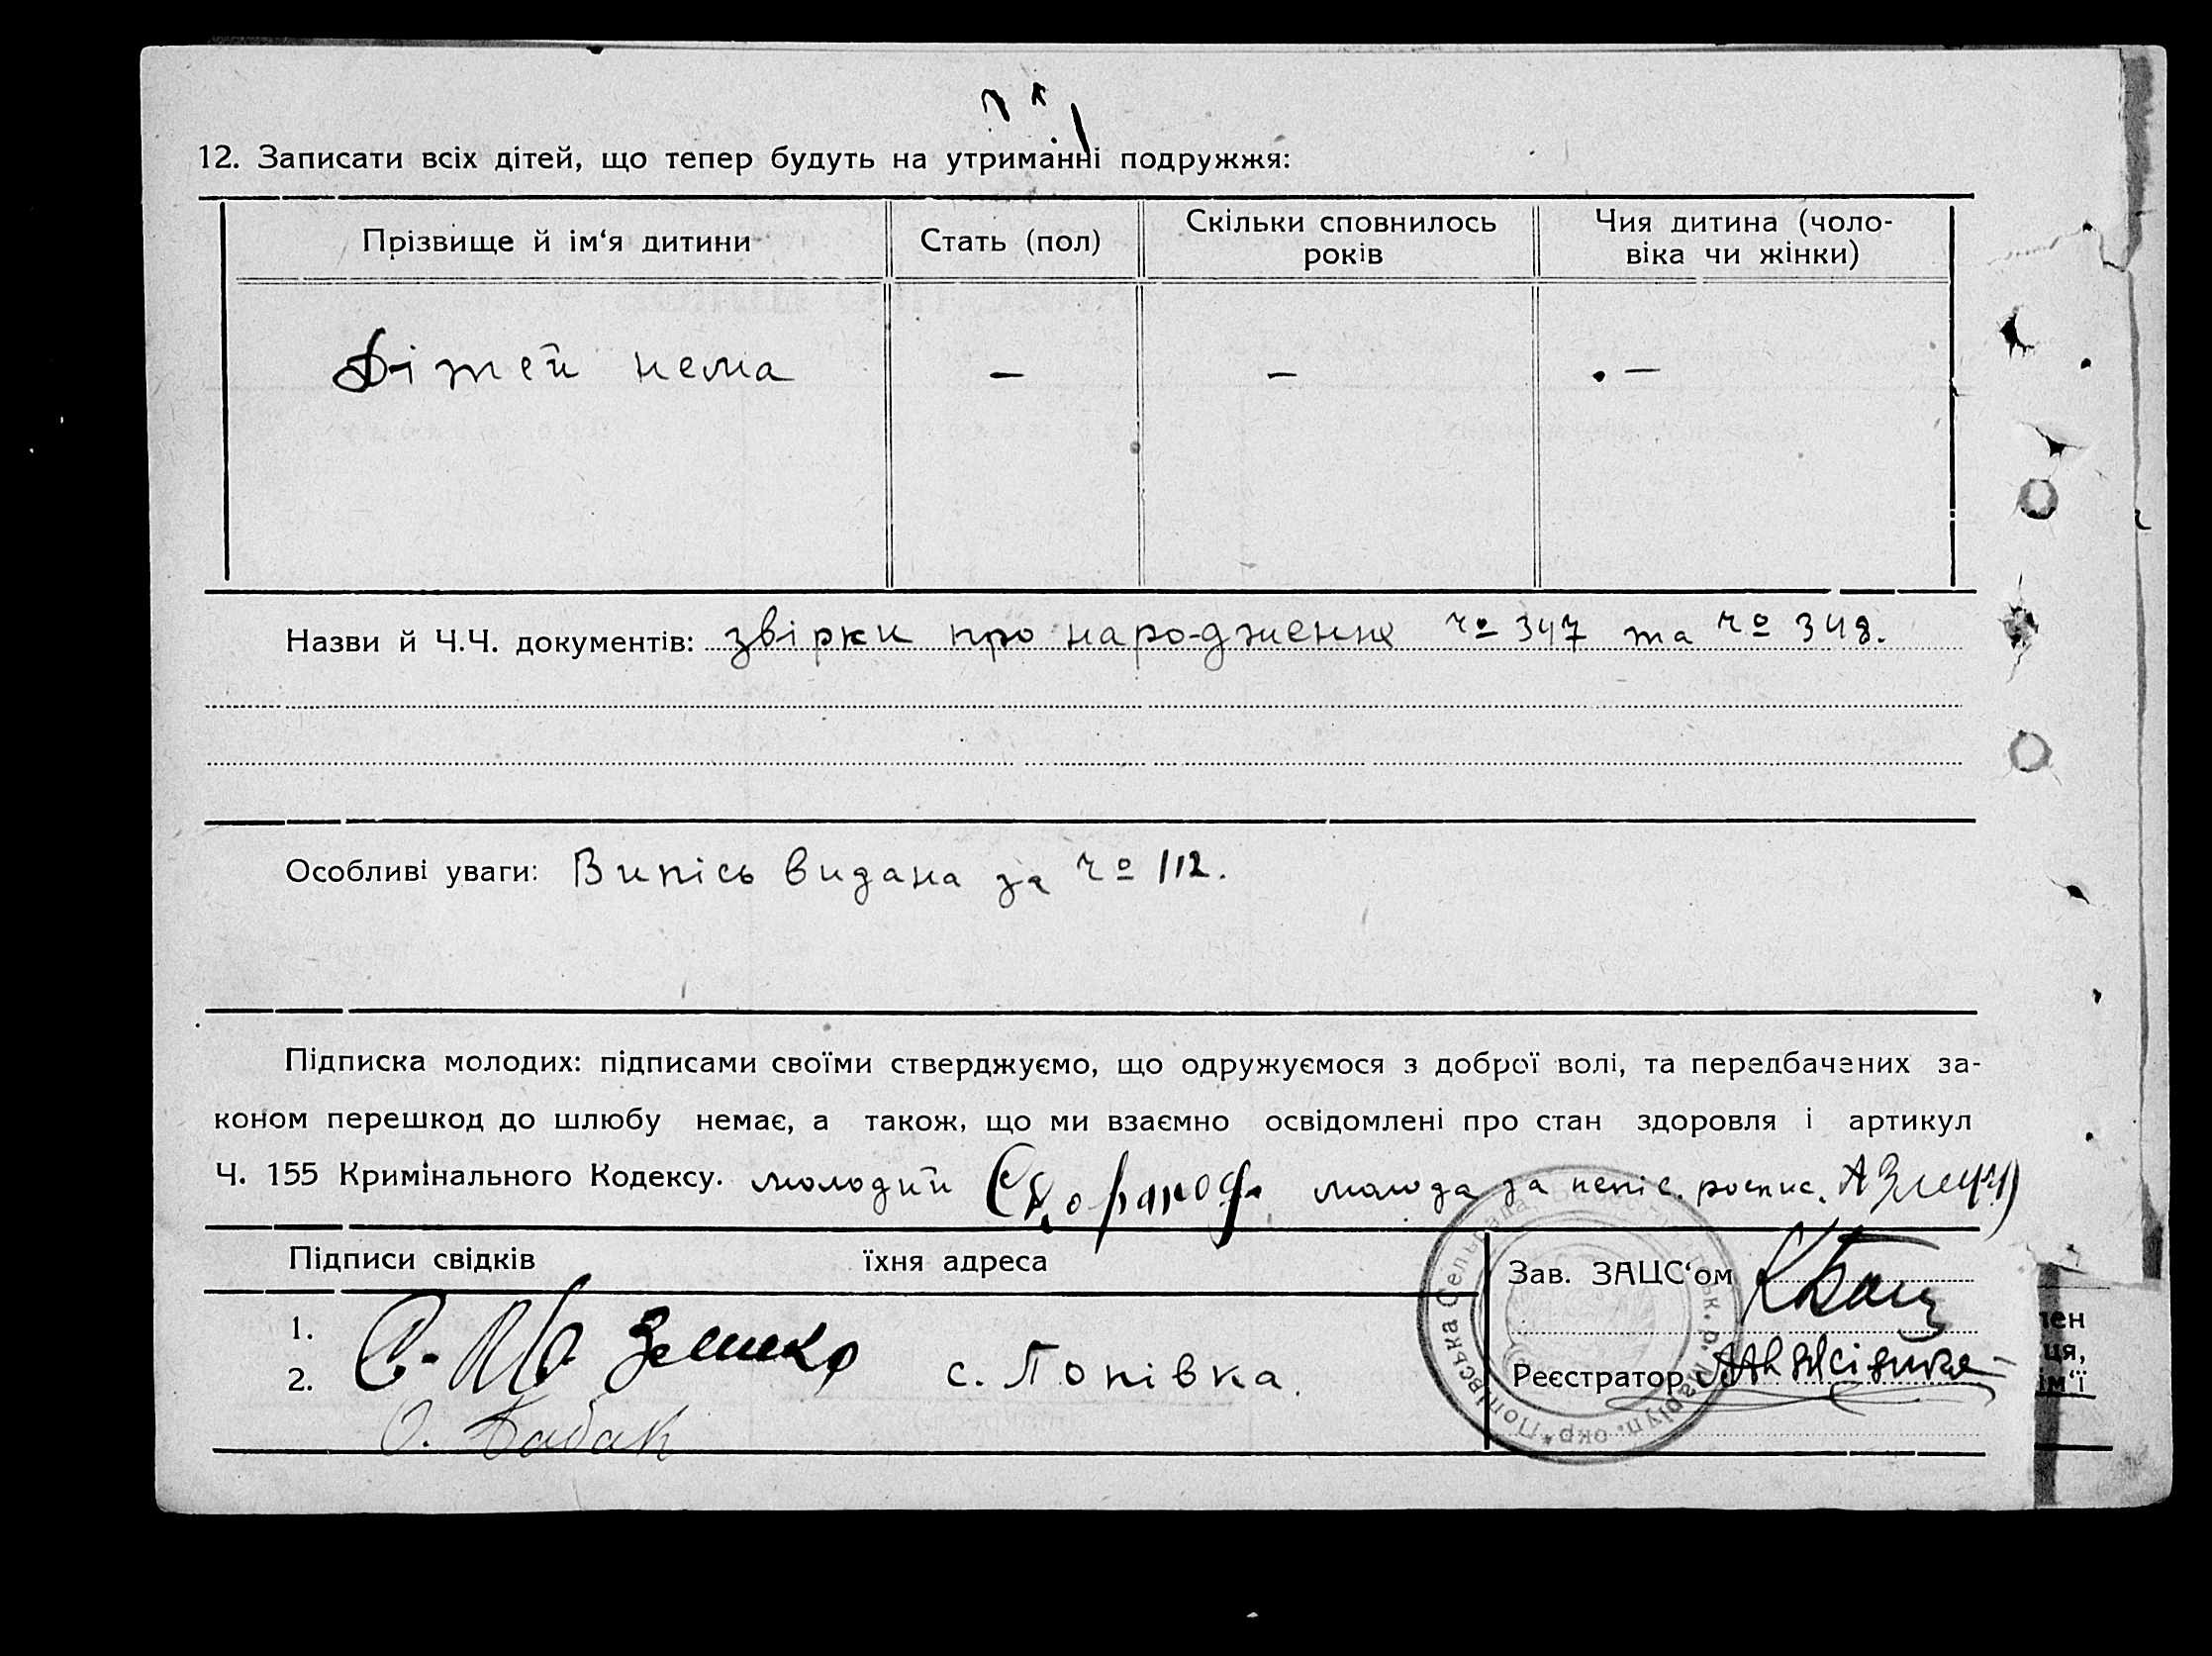 12. Записати всіх дітей, що тепер будуть на утриманні подружжя:
Прізвище й ім‘я дитини
Стать (пол)
Скільки сповнилось
років
Чия дитина (чоло-
віка чи жінки)
Дітей нема — — —
Назви й Ч.Ч. документів: звірки про народження чº 347 та чº 348.
Особливі уваги: Випісь видана за чº 112.
Підписка молодих: підписами своїми стверджуємо, що одружуємося з доброї волі, та передбачених за-
коном перешкод до шлюбу немає, а також, що ми взаємно освідомлені про стан здоровля і артикул
Ч. 155 Кримінального Кодексу. молодий молода за непіс. роспис.
Підписи свідків
їхня адреса
Зав. ЗАЦС‘ом
1.
2.
с. Попівка.
Реєстратор
О. Бабак
Попівська Сельрада
Маріуп. окр.
лен
ця,
ім‘ї